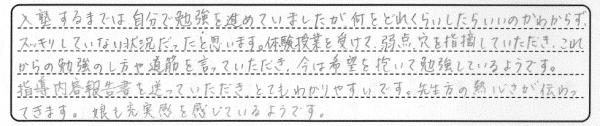 入塾するまでは自分で勉強を進めていましたが何をどれくらいしたらいいのかわからず、
スッキリしていない状況だったと思います。体験授業を受けて、弱点、穴を指摘していただき、これ
からの勉強のし方や道筋を言っていただき、今は希望を抱いて勉強しているようです。
指導内容報告書を送っていただき、とてもわかりやすいです。先生方の熱心さが伝わっ
てきます。娘も充実感を感じているようです。